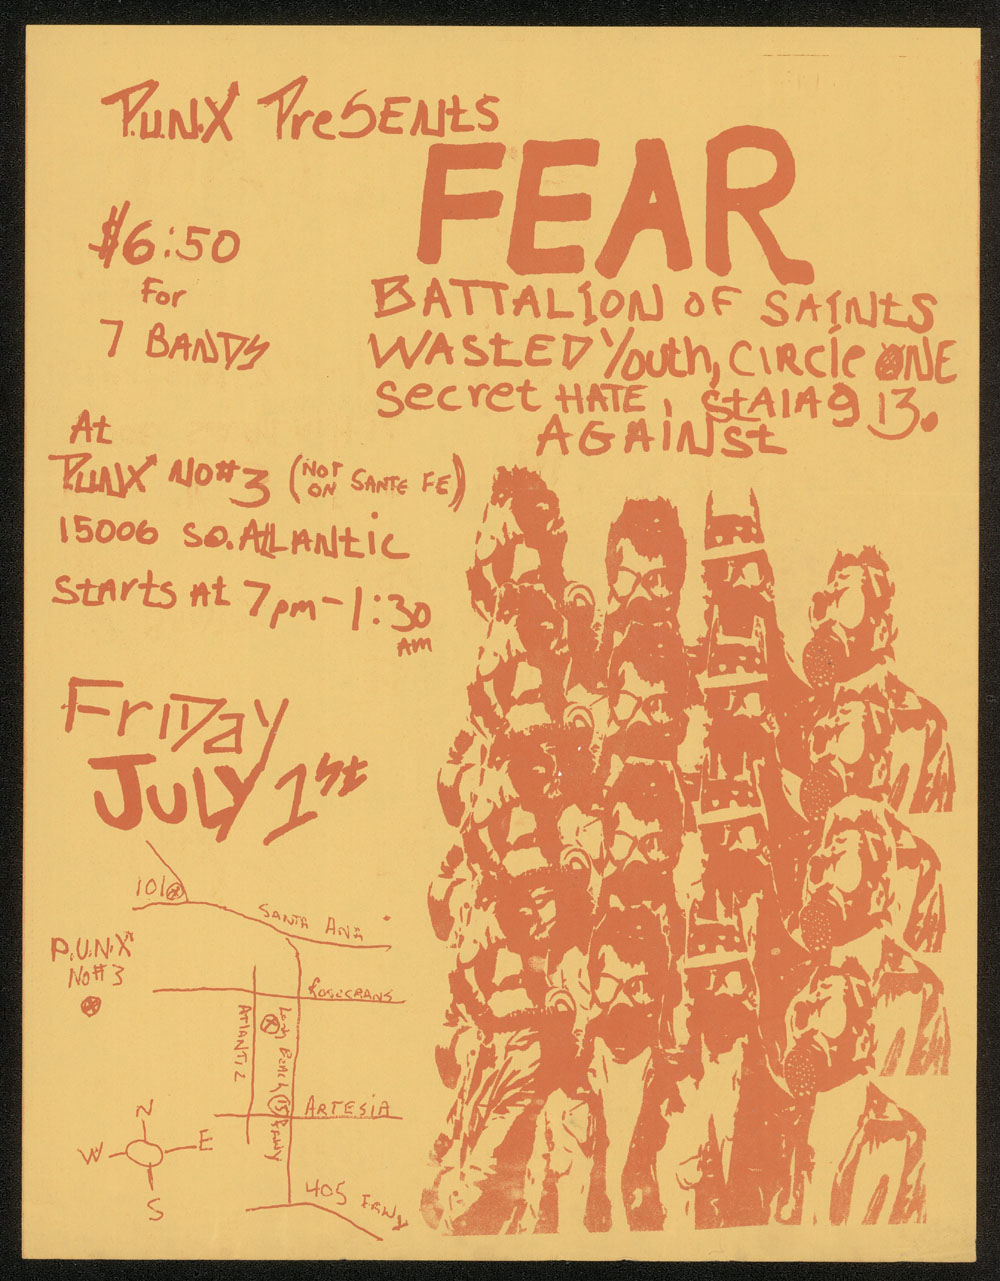 P.U.N.X PreSENts
FEAR
$6:50
For
7 BANDS
BATTALION OF SAINtS
WAStED Youth, CIRClE ONE
Secret HATE, StAlAg 13.
AGAINSt
At
P.U.N.X No#3 (NOT ON SANTE FE)
15006 SO. AtLANtic
StArtS At 7pm-1:30
AM
FriDay
JULY 1st
101
SANTA ANA
P.U.N.X
No#3
ROSECRANS
ATLANTIC
Long BEACh 15 FRWY
ARTESIA
N
W E
S
405 FRWY